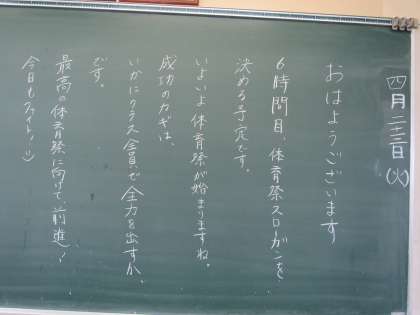 四月二十三日(火)
おはようございます
6時間目、体育祭スローガンを
決める予定です。
いよいよ体育祭が始まりますね。
成功のカギは、
いかにクラス全員で全力を出すか
です。
最高の体育祭に向けて前進!
今日もファイトッ!!